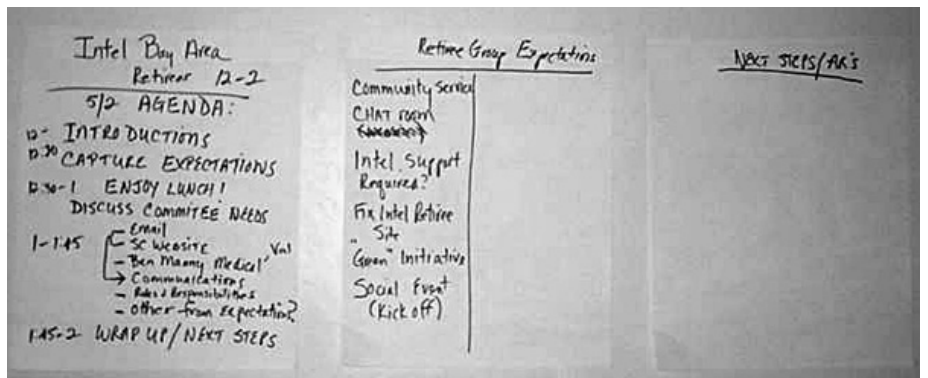 Intel Bay Area
Retiree 12-2
5/2 AGENDA:
12- INTRODUCTIONS
12:30 CAPTURE EXPECTATIONS
12:30-1 ENJOY LUNCH!
DISCUSS COMMITEE NEEDS
1-1:45
Email
SC Website
- Ben Manny Medical,
Communications
- Roles & Responsibilities
- other from expectation?
1:45-2 WRAP UP/NEXT STEPS
Retiree Group Expectations
Community Service
CHAT room
Intel Support
Required?
Fix Intel Retiree
Site
"Green" Initiative
Social Event
(Kick off)
NEXT STEPS/AR's